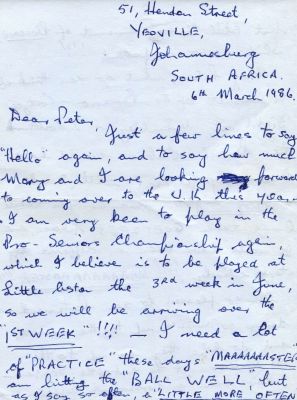 51, Hendon Street,
YEOVILLE,
Johannesburg
SOUTH AFRICA.
6th March 1986.
Dear Peter,
Just a few lines to say
"Hello" again, and to say how much
Mary and I are looking forward
to coming over to the U.K this year.
I am very keen to play in the
Pro-Seniors Championship again,
which I believe is to be played at
Little Aston the 3rd week in June,
so we will be arriving over the
"1ST WEEK" !!!! — I need a lot
of "PRACTICE" these days "MAAAAAASTER"
am hitting the "BALL WELL", but
as I say so often, a "LITTLE MORE OFTEN